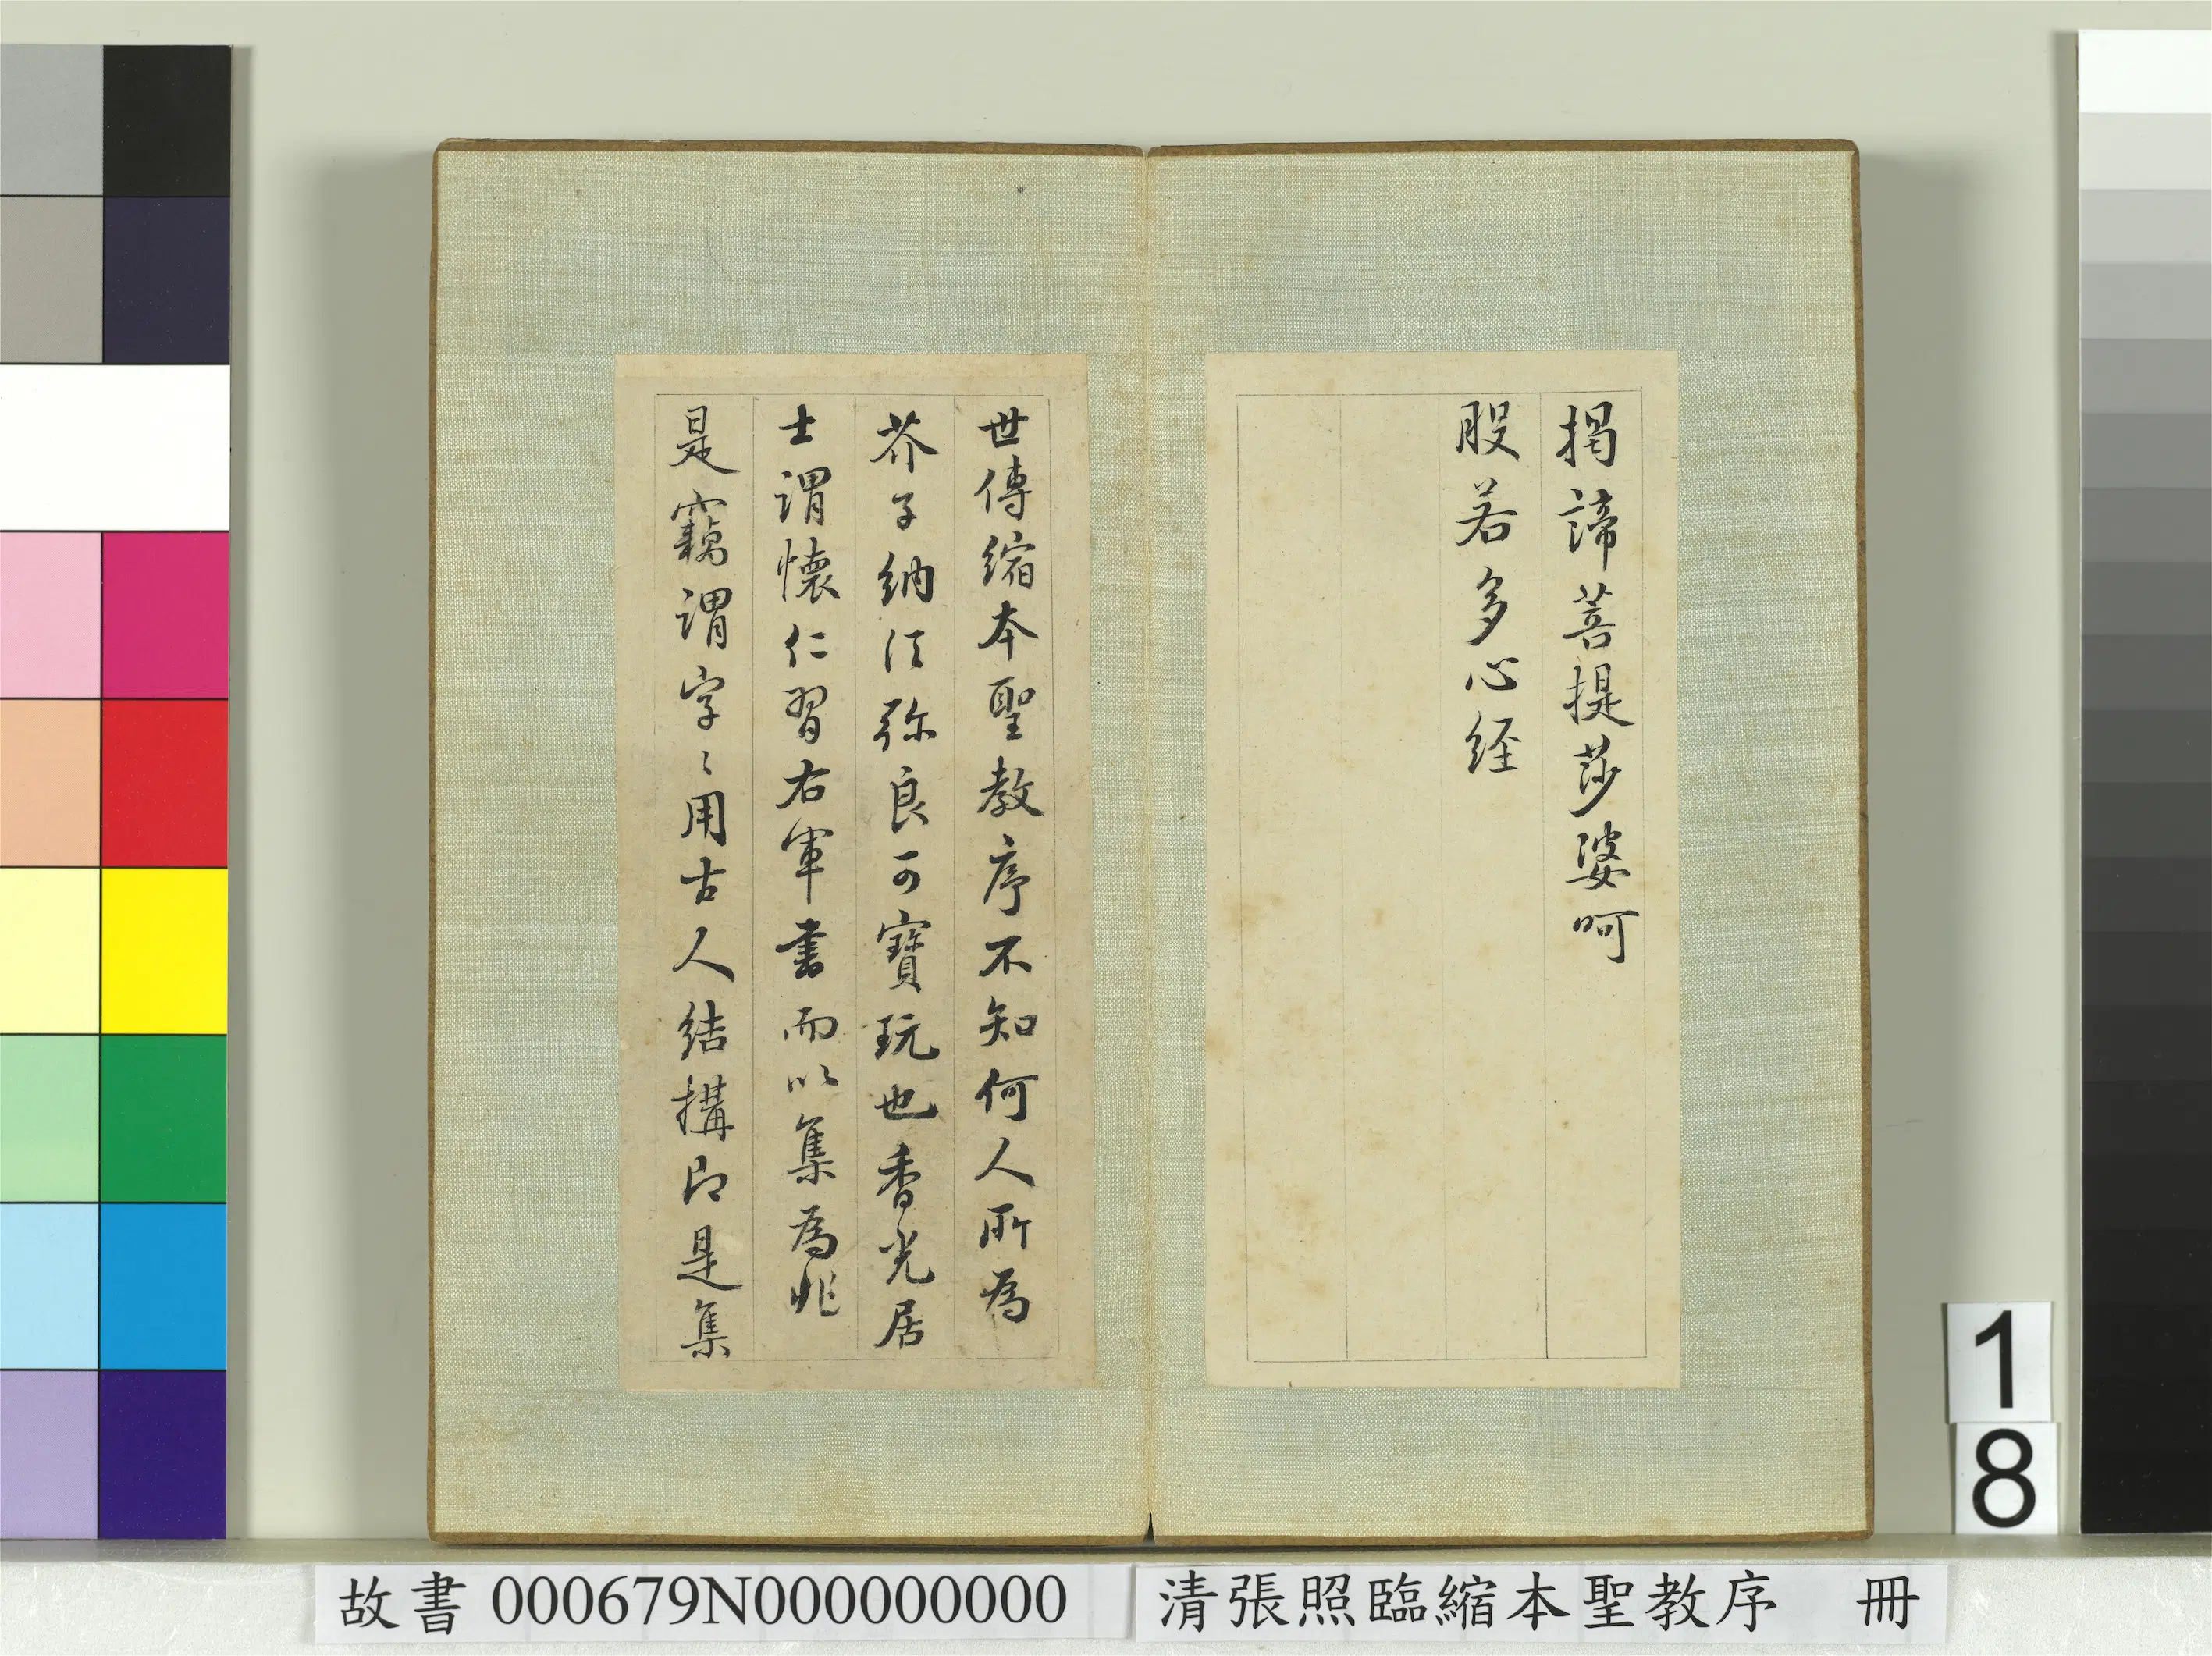 揭諦菩提莎婆呵
般若多心経
世傳縮本聖教序不知何人所為
芥子納須弥良可寶玩也香光居
士謂懷仁習右軍書而以集為非
是竊謂字〻用古人結構即是集
18
故書 000679N000000000
清張照臨縮本聖教序 冊